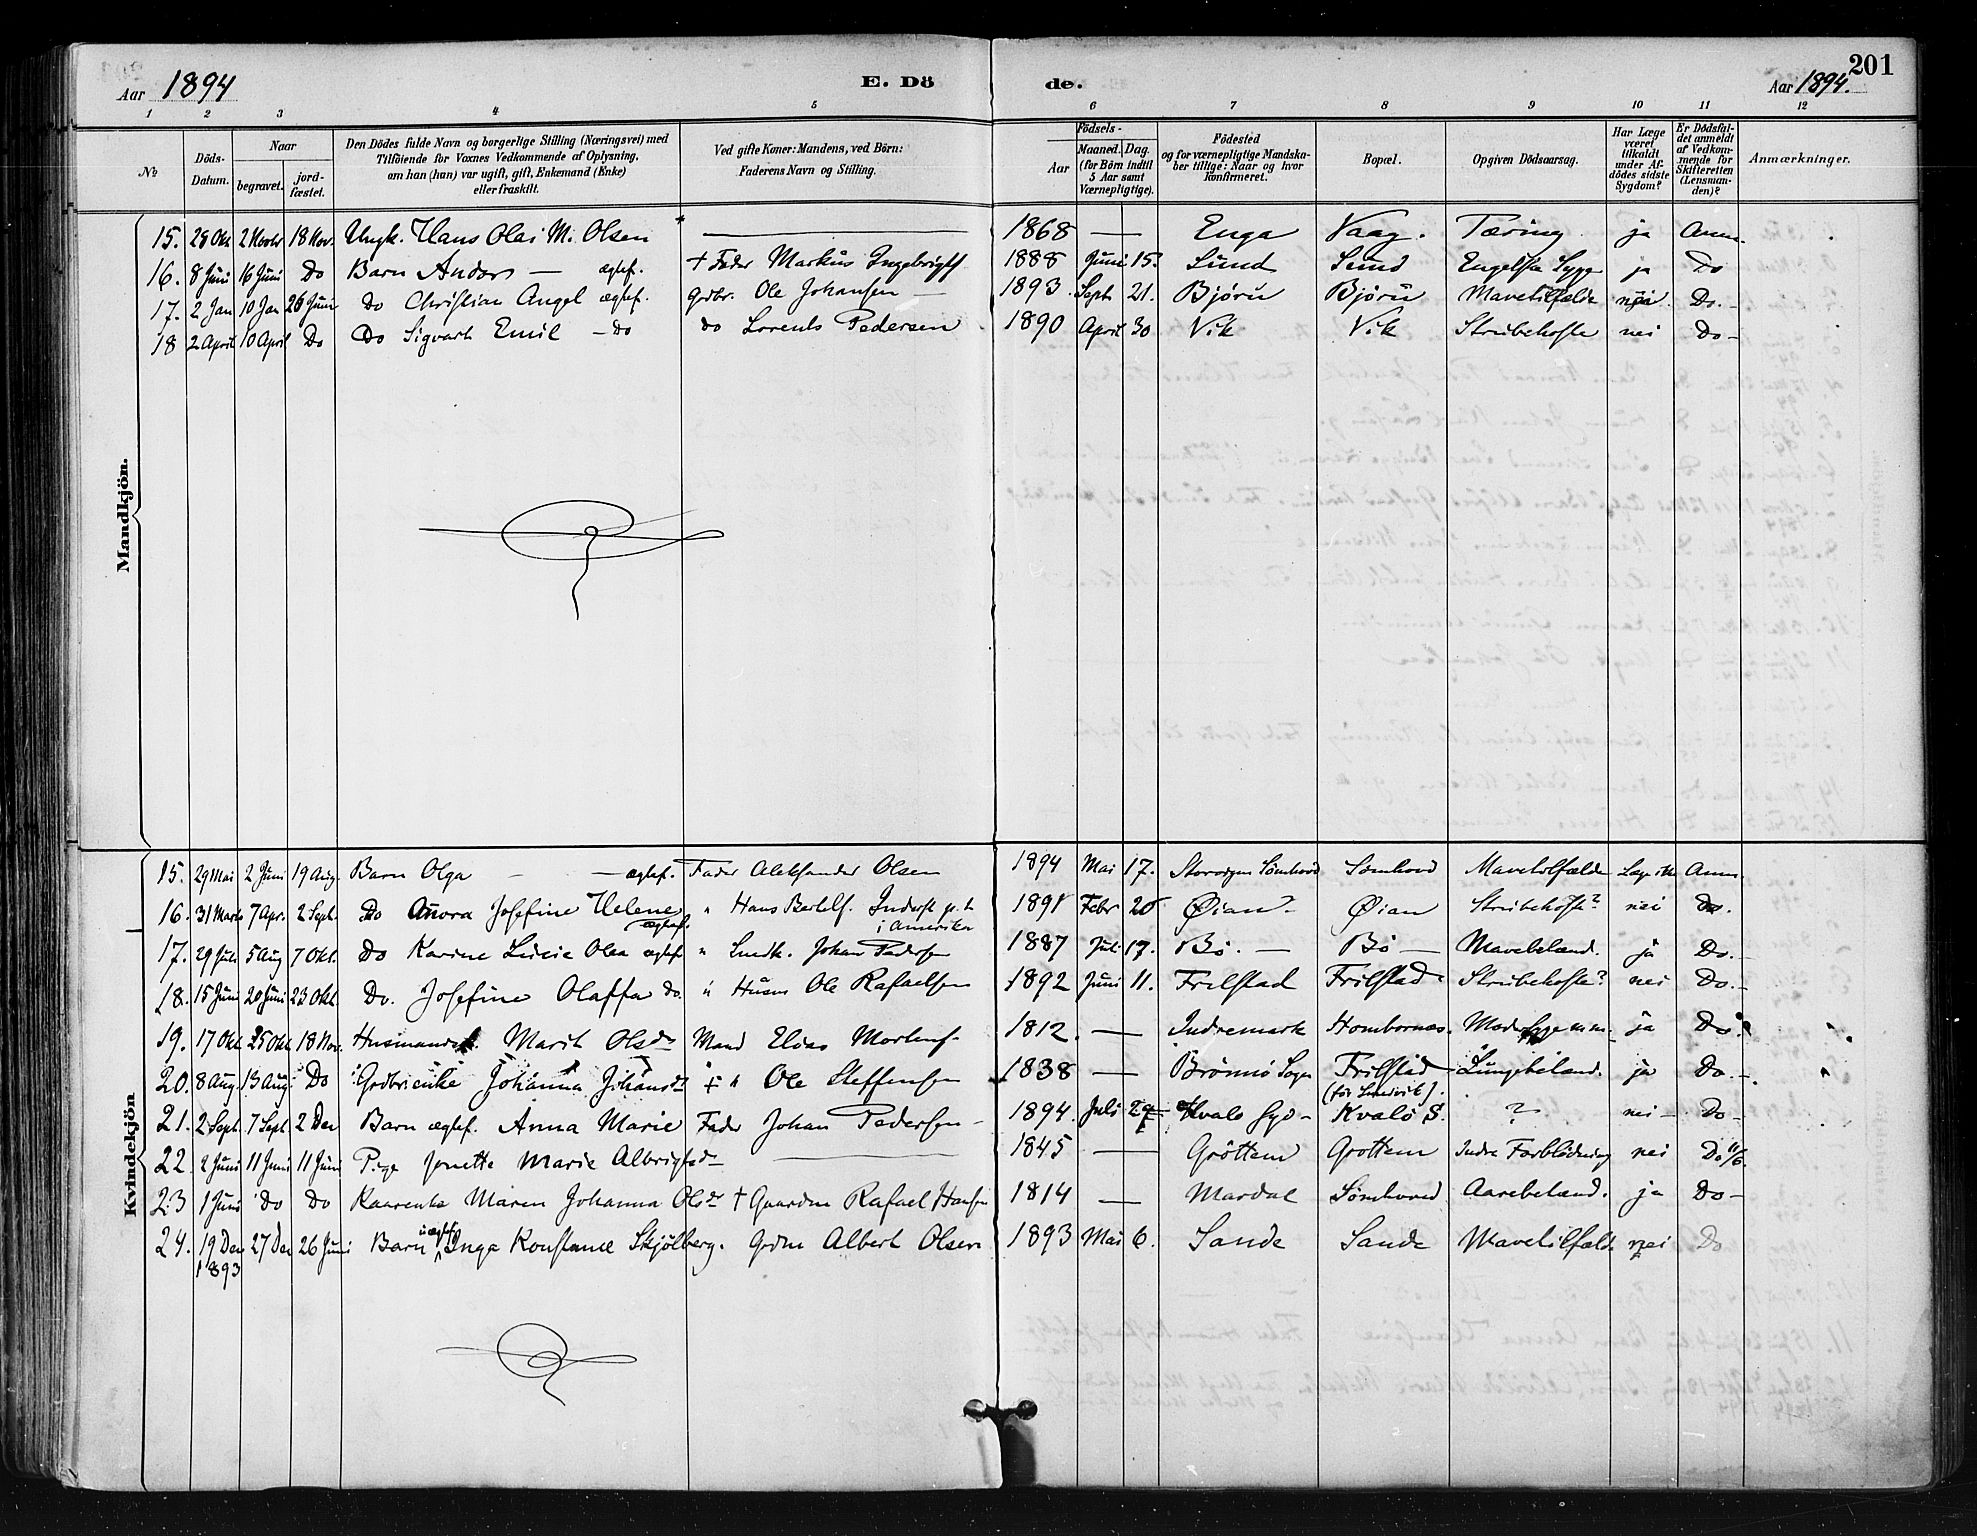 201
Aar 1894
E. Dö
de.
Aar 1894.
1 2 3 4 5 6 7 8 9 10 11 12
№
Döds-Datum.
Naar
begravet.
jord-fæstet.
Den Dödes fulde Navn og borgerlige Stilling (Næringsvei) med
Tilföiende for Voxnes Vedkommende af Oplysning,
om han (hun) var ugift, gift, Enkemand (Enke)
eller fraskilt.
Ved gifte Koner: Mandens, ved Börn:
Faderens Navn og Stilling.
Födsels-
Aar
Maaned. Dag.
(for Börn indtil
5 Aar samt
Værnepligtige).
Födested
og for værnepligtige Mandska-
ber tillige: Naar og hvor
konfirmeret.
Bopæl.
Opgiven Dödsaarsag.
Har Læge
været
tilkaldt
under Af-
dödes sidste
Sygdom?
Er Dödsfal-
det anmeldt
af Vedkom-
mende for
Skifteretten
(Lensman-
den)?
Anmærkninger.
Mandkjön.
15. 28 Okt 2 Novbr 18 Nov. Ungk. Hans Olai M. Olsen 1868 — Enga Vaag. Tæring ja Anm.
16. 8 Juni 16 Juni Do Barn Anders — ægtef. + Fader Markus Ingebrigts 1888 Juni 15. Lund Lund Engelsk Syge ja Do
17. 2 Jan 10 Jan 26 Juni Do Christian Angel ægtef. Grdbr. Ole Johansen — 1893. Sept 21. Bjøru Bjøru Mavetilfælde Do.
18 2 April 10 April Do Do Sigvart Emil — do do Lorents Pedersen 1890 April 30 Vik Vik Strubehoste nei Do —
Kvindekjön
15. 29 Mai 2 Juni 19 Aug. Barn Olga — — ægtef. Fader Aleksander Olsen 1894 Mai 17. Sømhovd Sømhovd Mavetilfælde Anm
16. 31 Marts 7 Apr. 2 Sept. Do Anora Josefine Helene ægtef. " Hans Bertelf. Inderst p.t. i Amerika 1891 Febr 20 Øian — Øian Strubehoste? nei Do.
17. 29 Juli 5 Aug 7 Okt. Do Karine Lucie Olea ægtef. " Johan Pedersen 1887 Juli 17. Bö. — Bö — Mavebetænd. ja Do. —
18. 15 Juni 20 Juni 23 Okt. Do. Josefine Olaffa do. " Husm Ole Rafaelsen 1892 Juni 11. Frilstad Frilstad Strubehoste? nei Do. —
19. 17 Okt 25 Okt 18 Nov. Marit Olsdr Mand Elias Mortens. 1812. — Indremark Hombornæs. ja Do
20. 8 Aug. 13 Aug Do Johanna Johansdr + " Ole Steffensen 1838 — Brönnö Sogn Frilstad (før Lundvik). Lungebetænd. ja Do. —
21. 2 Sept. 7 Sept 2 Dec Barn ægtef. Anna Marie Fader Johan Pedersen — 1894. Juli Kvalø S. ? nei — Do —
22. 2 Juni 11 Juni 11 Juni Pige Jonette Marie Albrigtsdr 1845 — Gröttem Grottem Indre Forblödning nei Do 11/6.
23. 1 Juni Do Do Kaarenke Maren Johanna Olsdr † Gaardm Rafael Hansen 1814 — Mardal Sømhovd Aarebetænd. ja Do —
24. 19 Dec 1893 27 Dec 26 Juni Barn uægtef Inga Konstance Skjølberg. Grdm Albert Olsen 1893 Mai 6. Sande Sande Mavetilfælde nei Do